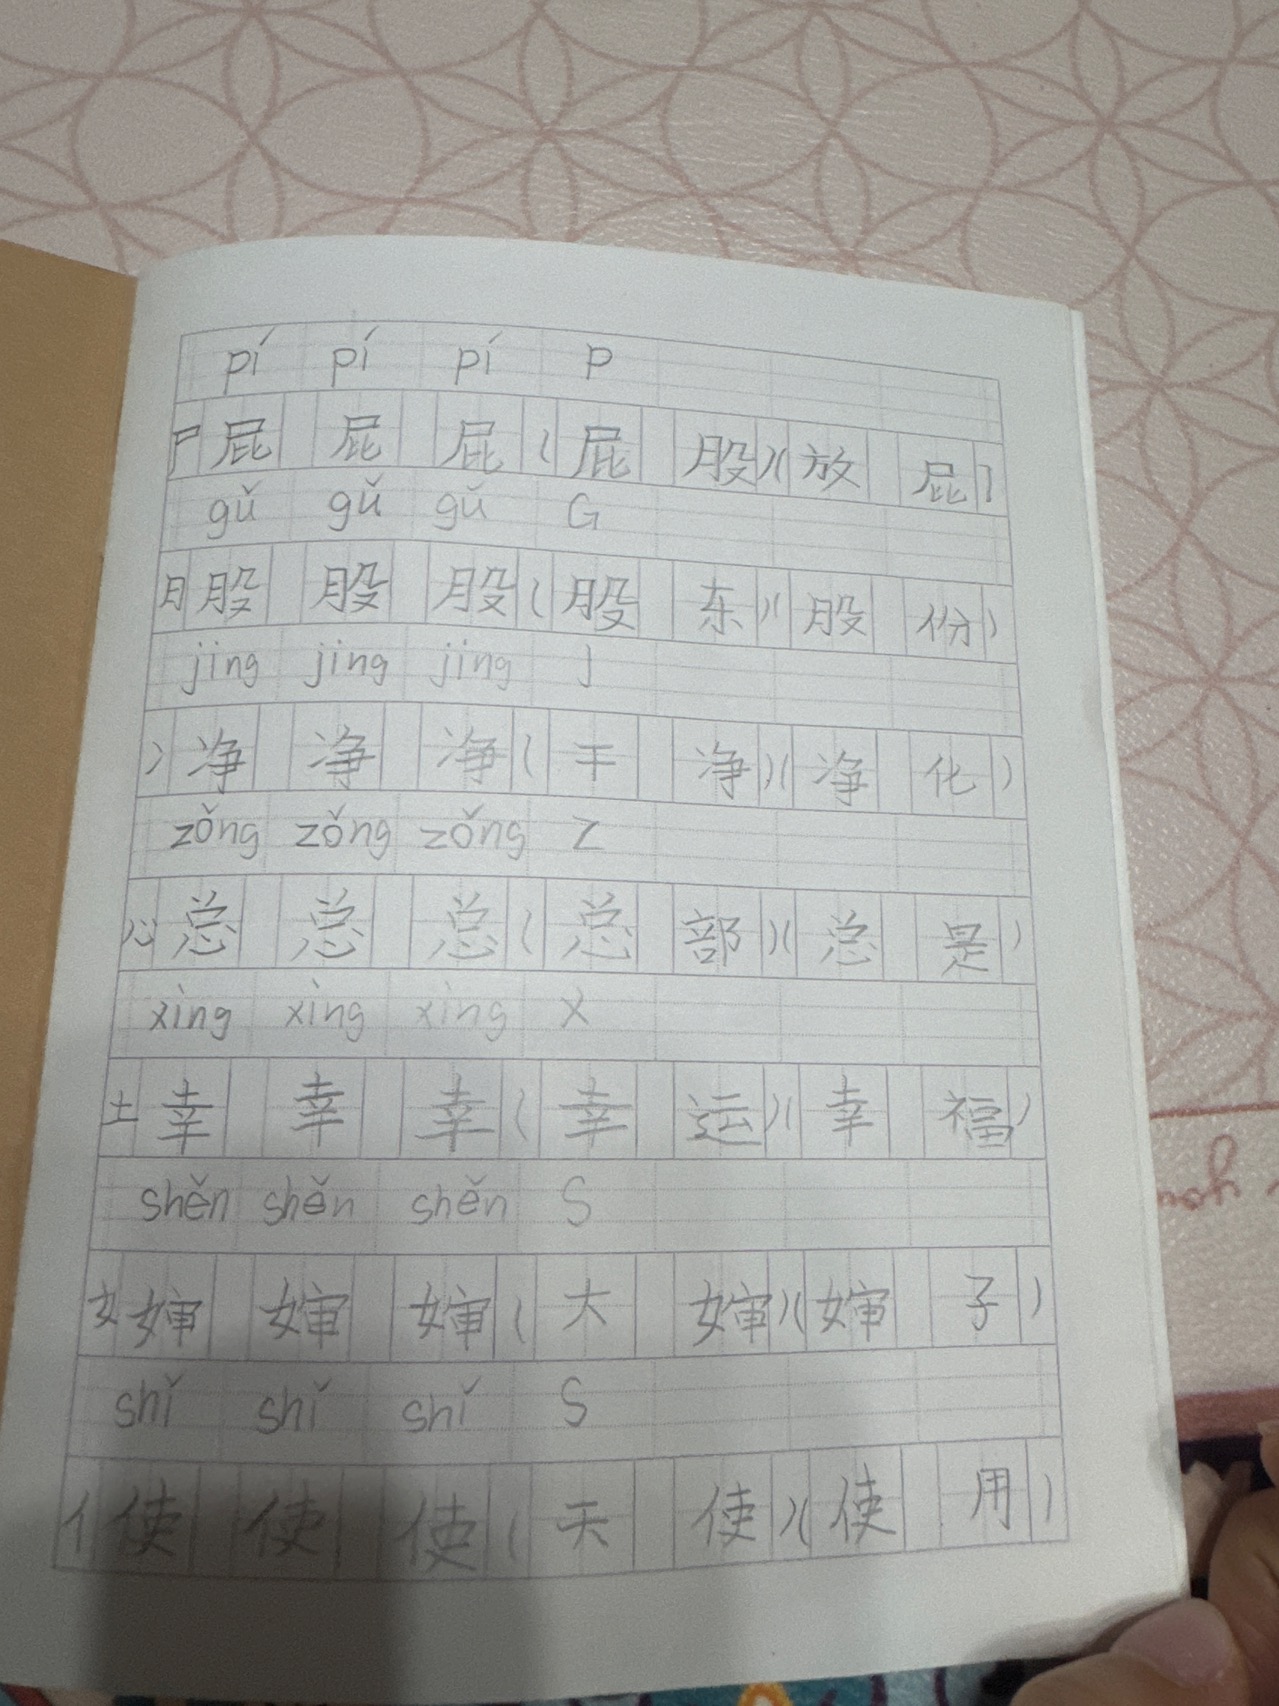 pí pí pí P
尸 屁 屁 屁 ( 屁 股 )( 放 屁 )
gǔ gǔ gǔ G
月 股 股 股 ( 股 东 )( 股 份 )
jìng jìng jìng J
冫 净 净 净 ( 干 净 )( 净 化 )
zǒng zǒng zǒng Z
心 总 总 总 ( 总 部 )( 总 是 )
xìng xìng xìng X
土 幸 幸 幸 ( 幸 运 )( 幸 福 )
shěn shěn shěn S
女 婶 婶 婶 ( 大 婶 )( 婶 子 )
shǐ shǐ shǐ S
亻 使 使 使 ( 天 使 )( 使 用 )